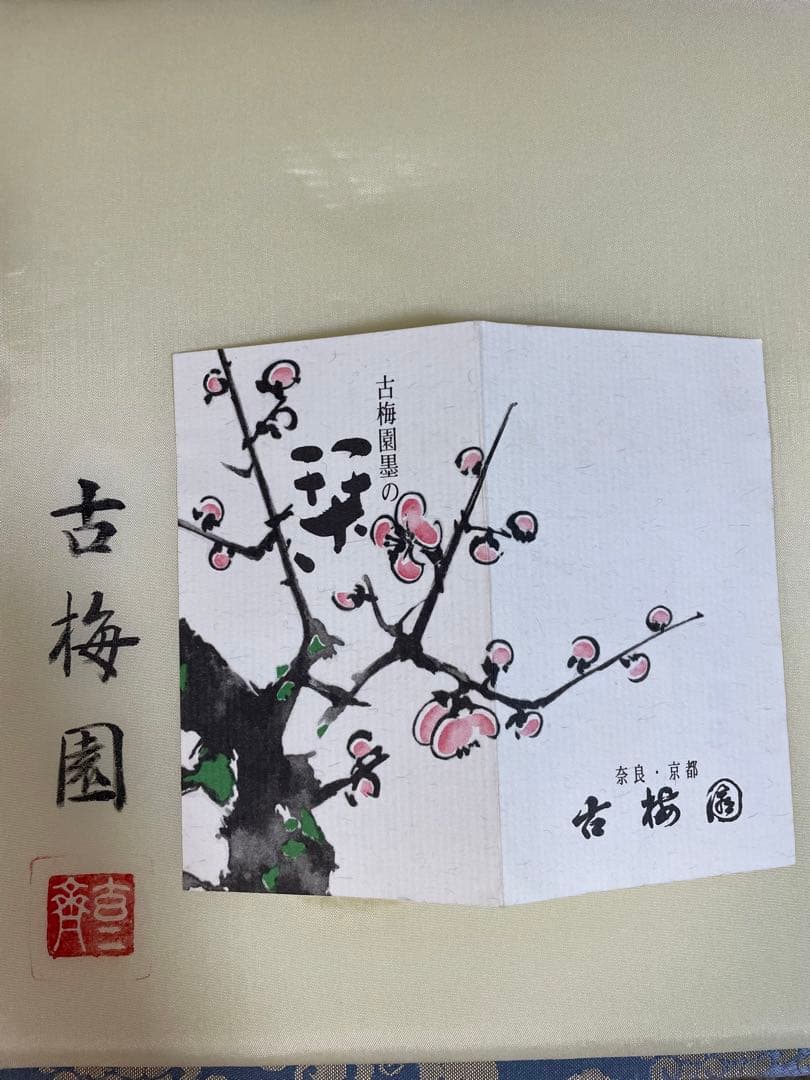 古梅園墨の
栞
奈良・京都
古梅園
古梅園